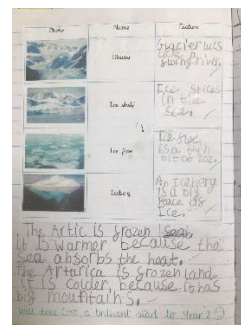 Photo Name Feature
Glacier
like a
slowing river.
Ice shelf
Ice sticks
in the
sea.
Ice floe
Ice floe
is a thin
bit of ice.
Iceberg
An Iceberg
is a big
peace of
Ice.
The Artic is frozen sea.
it is warmer because the
sea absorbs the heat.
The Artartica is frozen land.
It is colder, because it has
big mountains.
Well done a brilliant start to Year 2